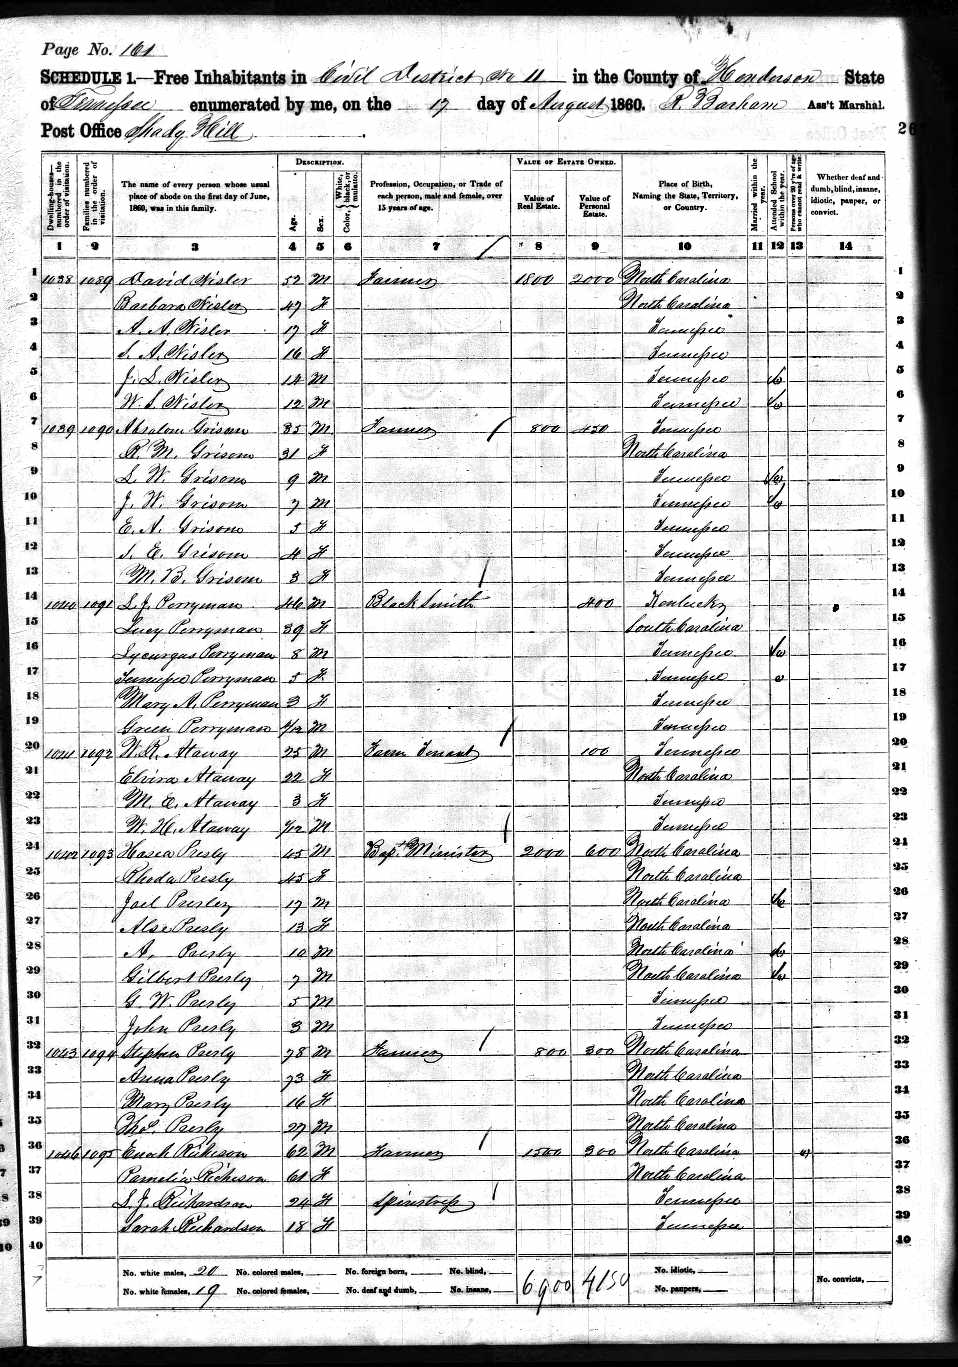 Page No. 161
SCHEDULE 1.—Free Inhabitants in Civil District No 11 in the County of Henderson State
of Tennessee enumerated by me, on the 17 day of August 1860. R. Barham Ass't Marshal.
Post Office Shady Hill
DESCRIPTION. VALUE OF ESTATE OWNED.
Dwelling-houses—numbered in the order of visitation. Families numbered in the order of visitation. The name of every person whose usual place of abode on the first day of June, 1860, was in this family. Age. Sex. Color, {White, black, or mulatto. Profession, Occupation, or Trade of each person, male and female, over 15 years of age. Value of Real Estate. Value of Personal Estate. Place of Birth, Naming the State, Territory, or Country. Married within the year. Attended School within the year. Persons over 20 y'rs of age who cannot read & write. Whether deaf and dumb, blind, insane, idiotic, pauper, or convict.
1 2 3 4 5 6 7 8 9 10 11 12 13 14
1 1038 1089 David Wisler 52 M Farmer 1800 2000 North Carolina 1
2 Barbara Wisler 47 F North Carolina 2
3 A. A. Wisler 17 F Tennessee 3
4 S. A. Wisler 16 F Tennessee 4
5 J. S. Wisler 14 M Tennessee 5
6 W. S. Wisler 12 M Tennessee 6
7 1039 1090 Absalom Grisom 35 M Farmer 800 450 Tennessee 7
8 R. M. Grisom 31 F North Carolina 8
9 L. W. Grisom 9 M Tennessee 9
10 J. W. Grisom 7 M Tennessee 10
11 E. A. Grisom 5 F Tennessee 11
12 S. E. Grisom 4 F Tennessee 12
13 M. B. Grisom 3 F Tennessee 13
14 1040 1091 L. J. Perryman 46 M Black Smith 400 Kentucky 14
15 Lucy Perryman 39 F South Carolina 15
16 Lycurgus Perryman 8 M Tennessee 16
17 Tennessee Perryman 5 F Tennessee 17
18 Mary A. Perryman 3 F Tennessee 18
19 Green Perryman /12 M Tennessee 19
20 1041 1092 W. R. Ataway 25 M Farm Tenant 100 Tennessee 20
21 Elvira Ataway 22 F North Carolina 21
22 M. E. Ataway 3 F Tennessee 22
23 W. H. Ataway /12 M Tennessee 23
24 1042 1093 Hasea Presly 45 M Bapt Minister 2000 600 North Carolina 24
25 Rhoda Presly 45 F North Carolina 25
26 Joel Presley 17 M North Carolina 26
27 Alse Presly 13 F North Carolina 27
28 A. Presly 10 M North Carolina 28
29 Gilbert Presly 7 M North Carolina 29
30 G. W. Presly 5 M Tennessee 30
31 John Presly 3 M Tennessee 31
32 1043 1094 Stephen Presly 78 M Farmer 800 300 North Carolina 32
33 Anna Presly 73 F North Carolina 33
34 Mary Presly 16 F North Carolina 34
35 Thos. Presly 27 M North Carolina 35
36 1046 1095 Enoch Rickison 62 M Farmer 1500 300 North Carolina 36
37 Pamelia Rickison 61 F North Carolina 37
38 S. J. Richardson 24 F Spinstress Tennessee 38
39 Sarah Richardson 18 F Tennessee 39
40 40
No. white males, 20 No. colored males, No. foreign born, No. blind, No. idiotic,
No. white females, 19 No. colored females, No. deaf and dumb, No. insane, 6900 4150 No. paupers, No. convicts,